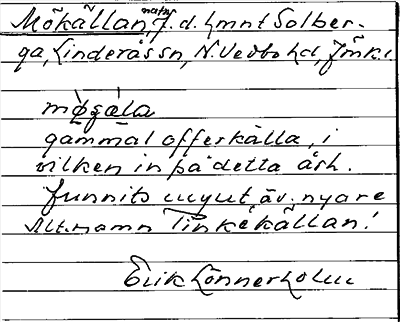 Mökällan, f.d. hmnt Solber-
ga, Linderås sn, N. Vedbo hd, Jmk.l
mø̀ɕä̀la
gammal offerkälla, i
vilken in på detta årh.
funnits mynt, äv. nyare
Alt. namn Tinkekällan!
Erik Lönnerholm